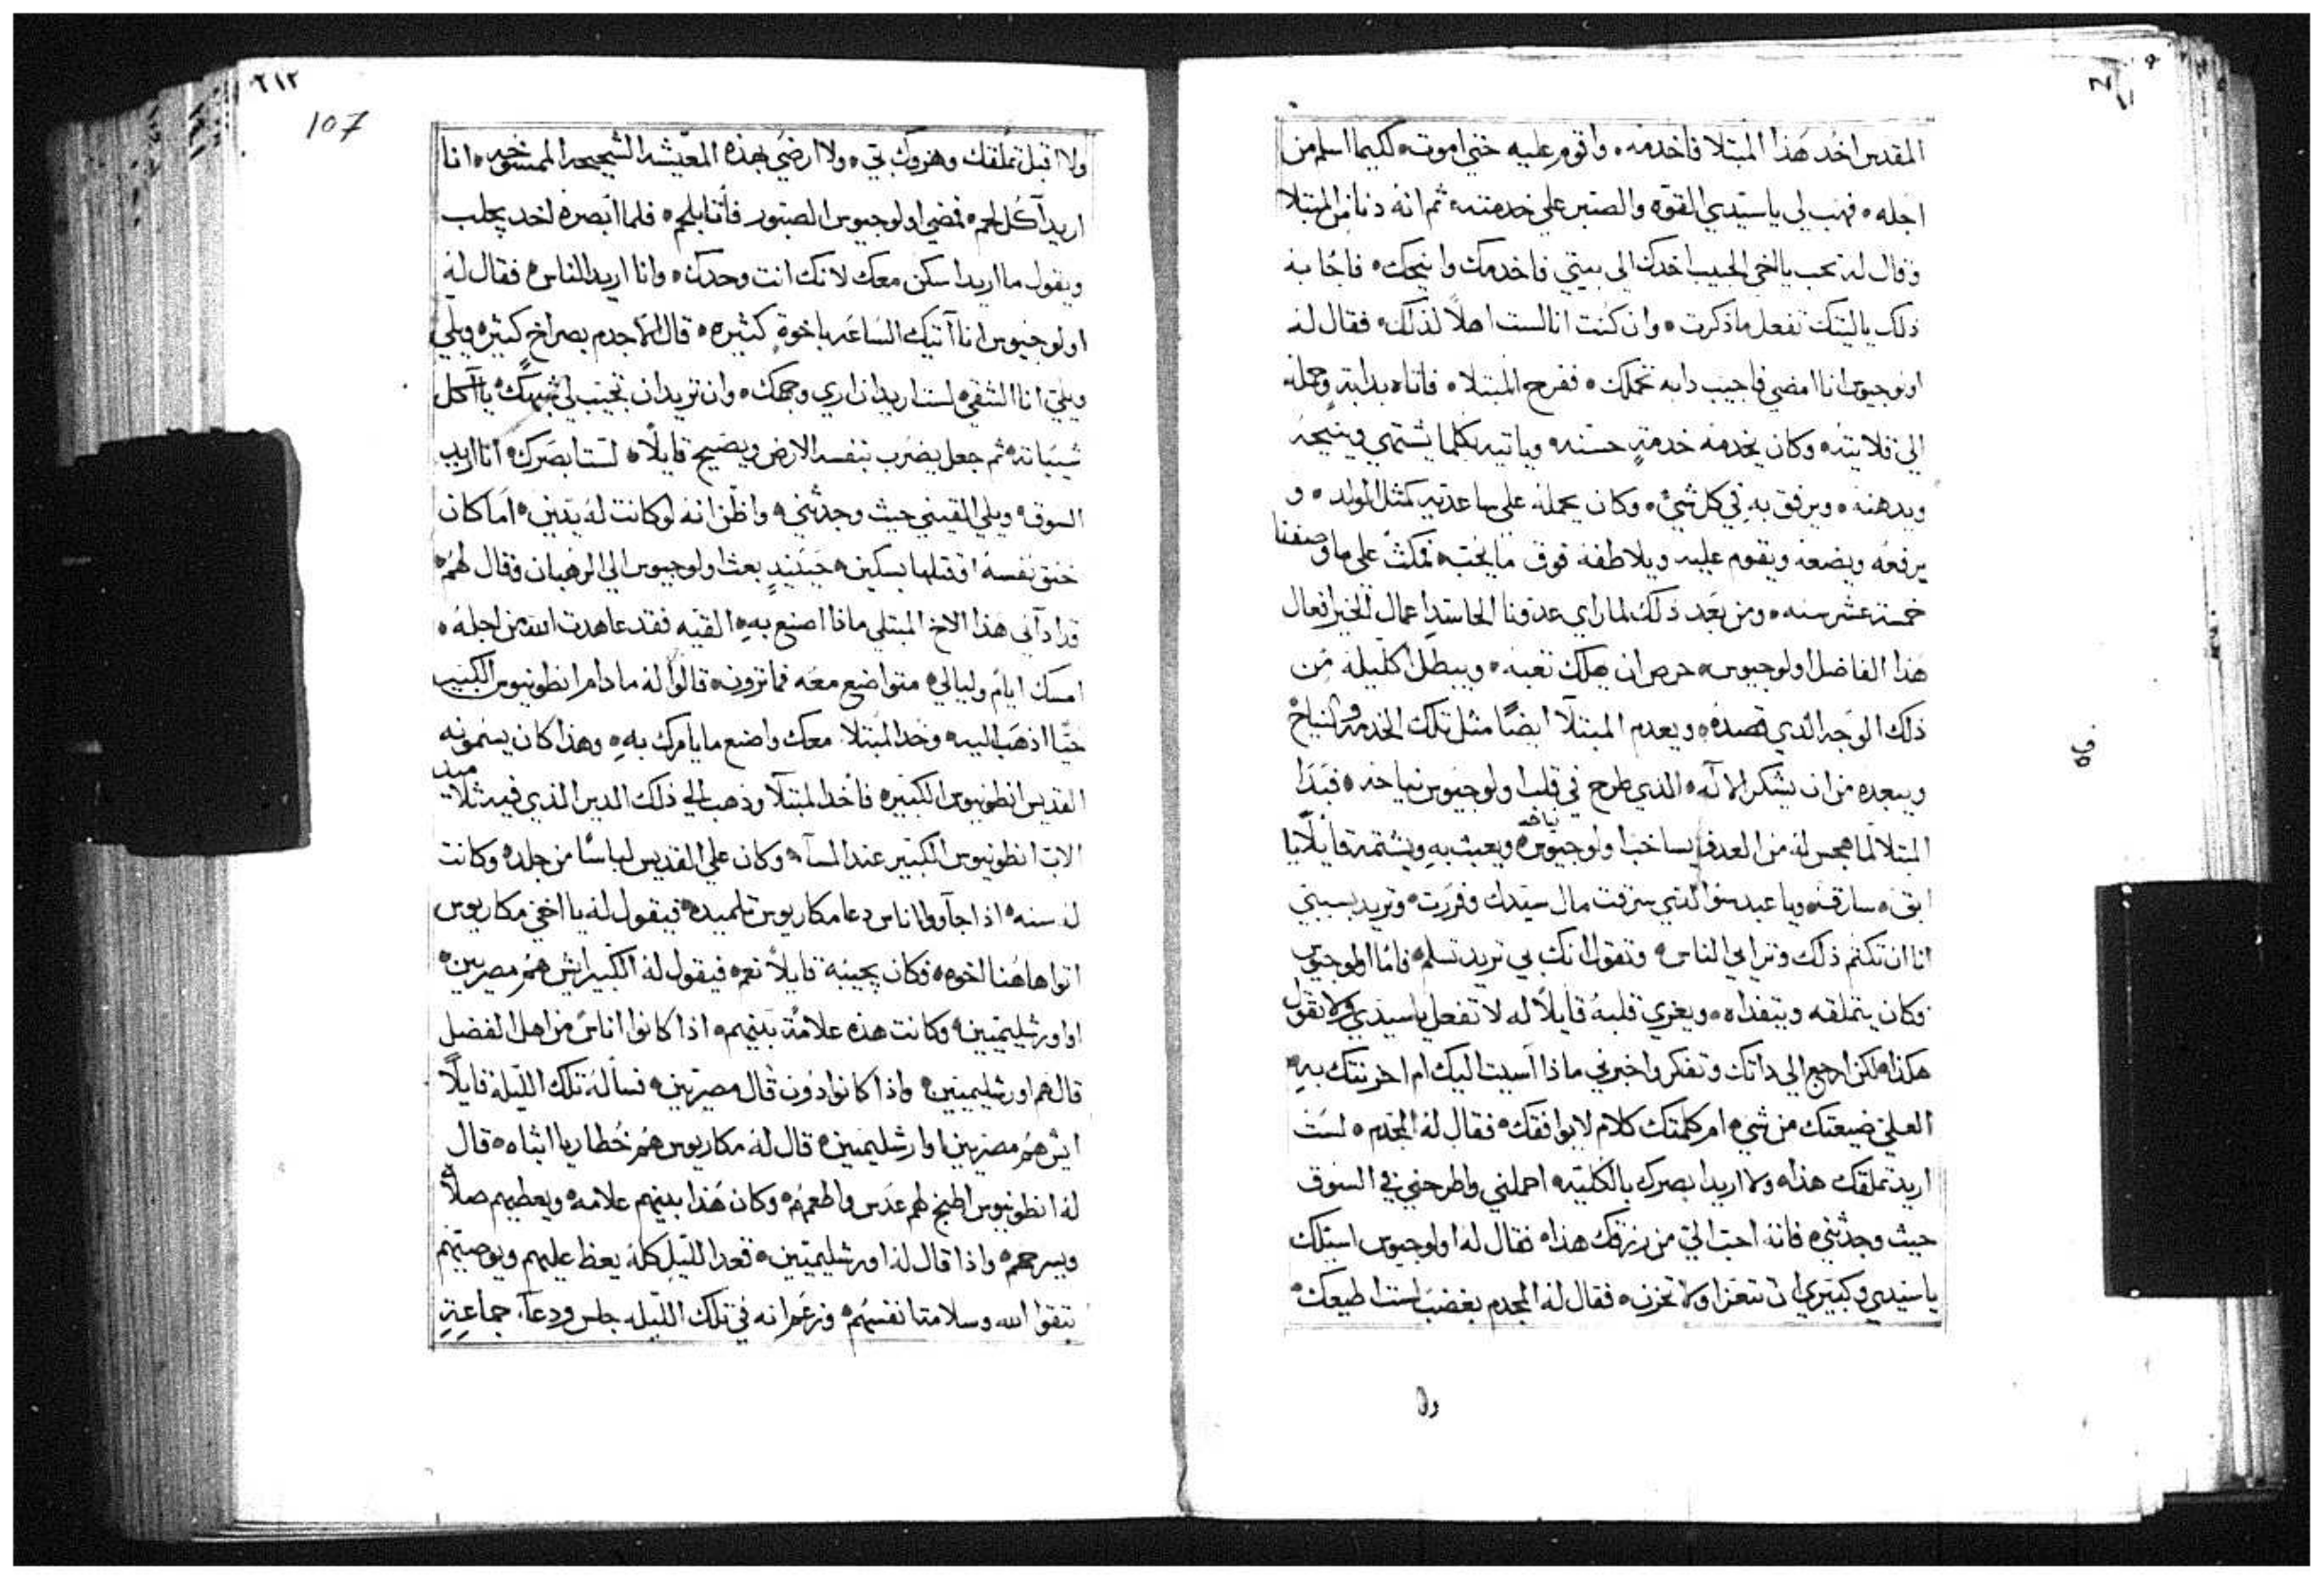 المقدس اخد هذا المبتلا فاخدمه، واقوم عليه حتي اموت، لكيما اسلم من
اجله، فهب لي يا سيدي القوه والصبر علي خدمته، ثم انه دنا من المبتلا
وقال له تحب يا اخي الحبيب اخدك الي بيتي فاخدمك وانيحك، فاجابه
ذلك ياليتك تفعل ما ذكرت، وان كنت انا لست اهلاً لذلك، فقال له
اولوجيوس انا امضي فاجيب دابه تحملك، ففرح المبتلا، فاتاه بدابةٍ وحمله
الي قلايته، وكان يخدمه خدمةٍ حسنه، وياتيه بكلما يشتهي وينيحه
ويدهنه، ويرفق به في كل شيء، وكان يحمله علي ساعديه كمثل المولد، و
يرفعه ويضعه ويقوم عليه ويلاطفه فوق ما يجب، فمكث علي ما وصفنا
خمسة عشر سنه، ومن بعد ذلك لما راي عدونا الحاسد اعمال الخير افعال
هذا الفاضل اولوجيوس، حرص ان يهلك تعبه، ويبطل اكليله من
ذلك الوجه الذي قصده، ويعدم المبتلا ايضًا مثل تلك الخدمه والنياح
ويبعده من ان يشكر الاله، الذي طرح في قلب اولوجيوس نياحه، فبدا
المبتلا لما هجس له من العدو يساخب اولوجيوس، ويعبث به ويشتمه قايلاً يا
نياحه
ابق، سارقه، ويا عبد سو الذي سرقت مال سيدك وفررت، وتريد بسببي
انا ان تكتم ذلك وترايي الناس، وتقول انك بي تريد تسلم، فاما اولوجيوس
فكان يتملقه ويتفداه، ويعزي قلبه قايلاً له لا تفعل يا سيدي ولا تقول
هكذا، لكن ارجع الي داتك وتفكر واخبرني ماذا اسيت اليك ام احزنتك به
العلي ضيعتك من شيء ام كلمتك كلام لا يوافقك، فقال له المجدم، لست
اريد تملقك هذا، ولا اريد ابصرك بالكليه، احملني واطرحني في السوق
حيث وجدتني، فانه احب الي من رزقك هذا، فقال له اولوجيوس اسيلك
يا سيدي وكبيري ان تتعزا ولا تحزن، فقال له المجدم بغضب لست اطيعك،
ول
٦١٢
107
ولا اقبل تملقك وهزوك بي، ولا ارضي بهذه المعيشه الشحيحه الممسوخه، انا
اريد آكل لحم، فمضي اولوجيوس الصبور فأتا بلحم، فلما ابصره اخد يجلب
ويقول ما اريد اسكن معك لانك انت وحدك، وانا اريد الناس، فقال له
اولوجيوس انا آتيك الساعه باخوةٍ كثيره، قال الاجدم بصراخ كثير، ويلي
ويلي انا الشقي، لست اريد ان اري وجهك، وان تريد ان تجيب لي شبهك، يا آكل
ثم جعل يضرب بنفسه الارض ويصيح قايلاً، لست ابصرك، انا اريد
السوق، ويلي القيني حيث وجدتني، واظن انه لو كانت له يدين، اما كان
خنق نفسه او قتلها بسكين، حينيدٍ بعث اولوجيوس الي الرهبان وقال لهم،
قد ادآني هذا الاخ المبتلي ماذا اصنع به، القيه فقد عاهدت الله من اجله،
امسك ايام وليالي، متواضع معه فما ترون، قالوا له ما دام انطونيوس الكبير
حيًا اذهب اليه، وخد المبتلا معك واصنع ما يامرك به، وهذا كان يسمونه
القديس انطونيوس الكبير، فاخد المبتلا وذهب الي ذلك الدير الذي فيه تلاميد
الاب انطونيوس الكبير عند المسآ، وكان علي القديس لباسًا من جلد، وكانت
له سنه، اذا جآوا اناس دعا مكاريوس تلميده، فيقول له يا اخي مكاريوس
اتوا هاهنا اخوه، فكان يجيبه قايلاً نعم، فيقول له الكبير ايش هم مصريين،
او اورشليميين، وكانت هذه علامةً بينهم، اذا كانوا اناسً من اهل الفضل
قال هم اورشليميين، واذا كانوا دون قال مصريين، فسأله تلك الليله قايلاً
ايش هم مصريين او ارشليميين، قال له مكاريوس هم خطار يا ابتاه، قال
له انطونيوس اطبخ لهم عدس واطعمهم، وكان هذا بينهم علامه، ويعطيهم صلاً
ويسرحهم، واذا قال له اورشليميين، قعد الليل كله يعظ عليهم ويوصيهم
بتقوا الله وسلامة انفسهم، وزعموا انه في تلك الليله جلس ودعا، جماعةٍ